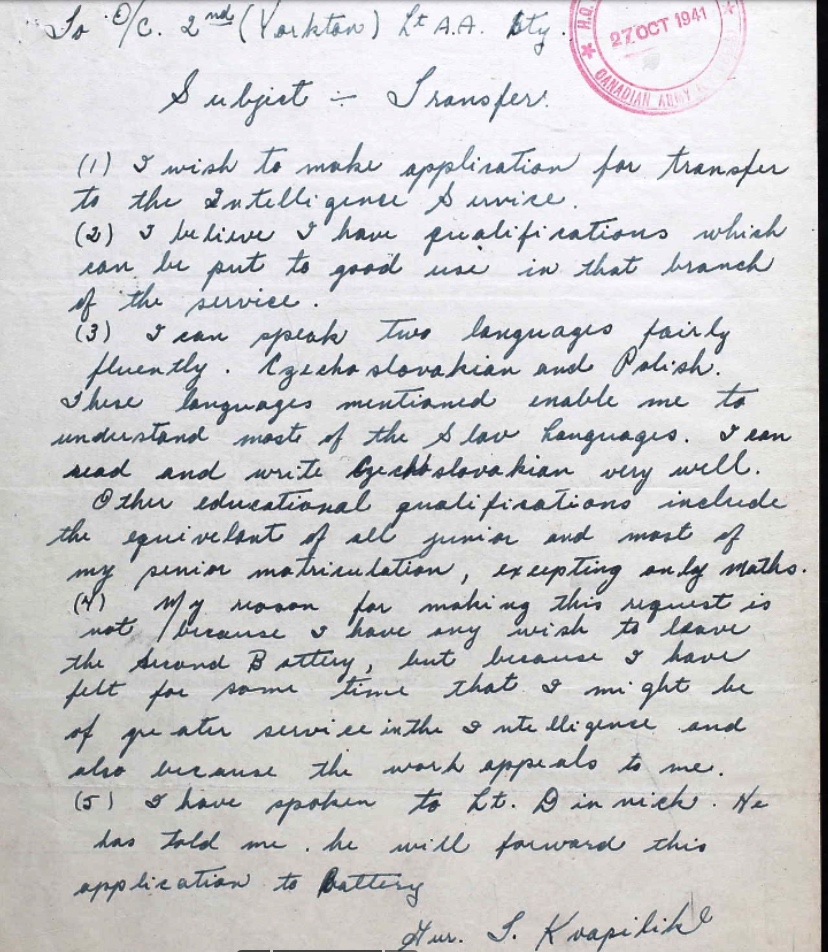 To O/C. 2nd (Yorkton) Lt A.A. Bty.
H.Q.
27 OCT 1941
CANADIAN ARMY
Subject :- Transfer.
(1) I wish to make application for transfer
to the Intelligence Service.
(2) I believe I have qualifications which
can be put to good use in that branch
of the service.
(3) I can speak two languages fairly
fluently. Czechoslovakian and Polish.
These languages mentioned enable me to
understand most of the Slav Languages. I can
read and write Czechoslovakian very well.
Other educational qualifications include
the equivelant of all junior and most of
my senior matriculation, excepting only maths.
(4) My reason for making this request is
not because I have any wish to leave
the Second Battery, but because I have
felt for some time that I might be
of greater service in the Intelligence and
also because the work appeals to me.
(5) I have spoken to Lt. Dinnick. He
has told me he will forward this
application to Battery
Gnr. S. Kvapilik